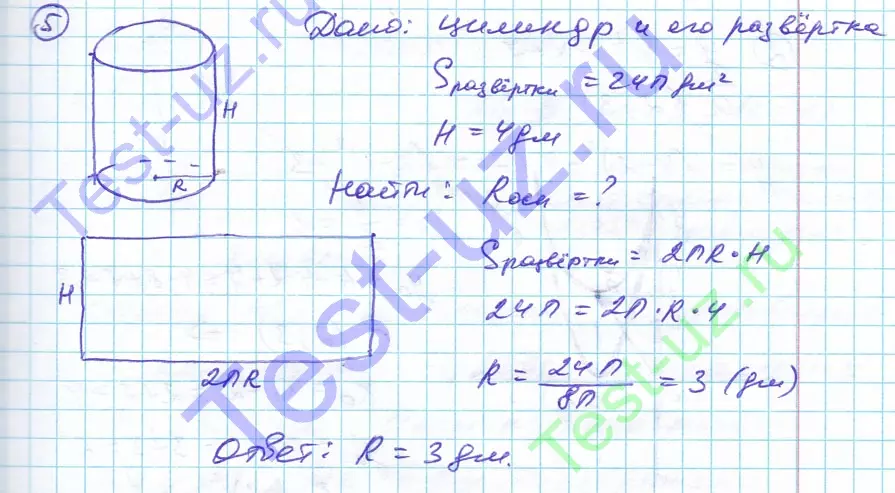 5
Дано: цилиндр и его развёртка
Sразвёртки = 24π дм²
H = 4 дм
H
R
Найти: Rосн = ?
Sразвёртки = 2πR · H
H
24π = 2π · R · 4
2πR
R = 24π / 8π = 3 (дм)
Ответ: R = 3 дм.
Test-uz.ru
Test-uz.ru
Test-uz.ru